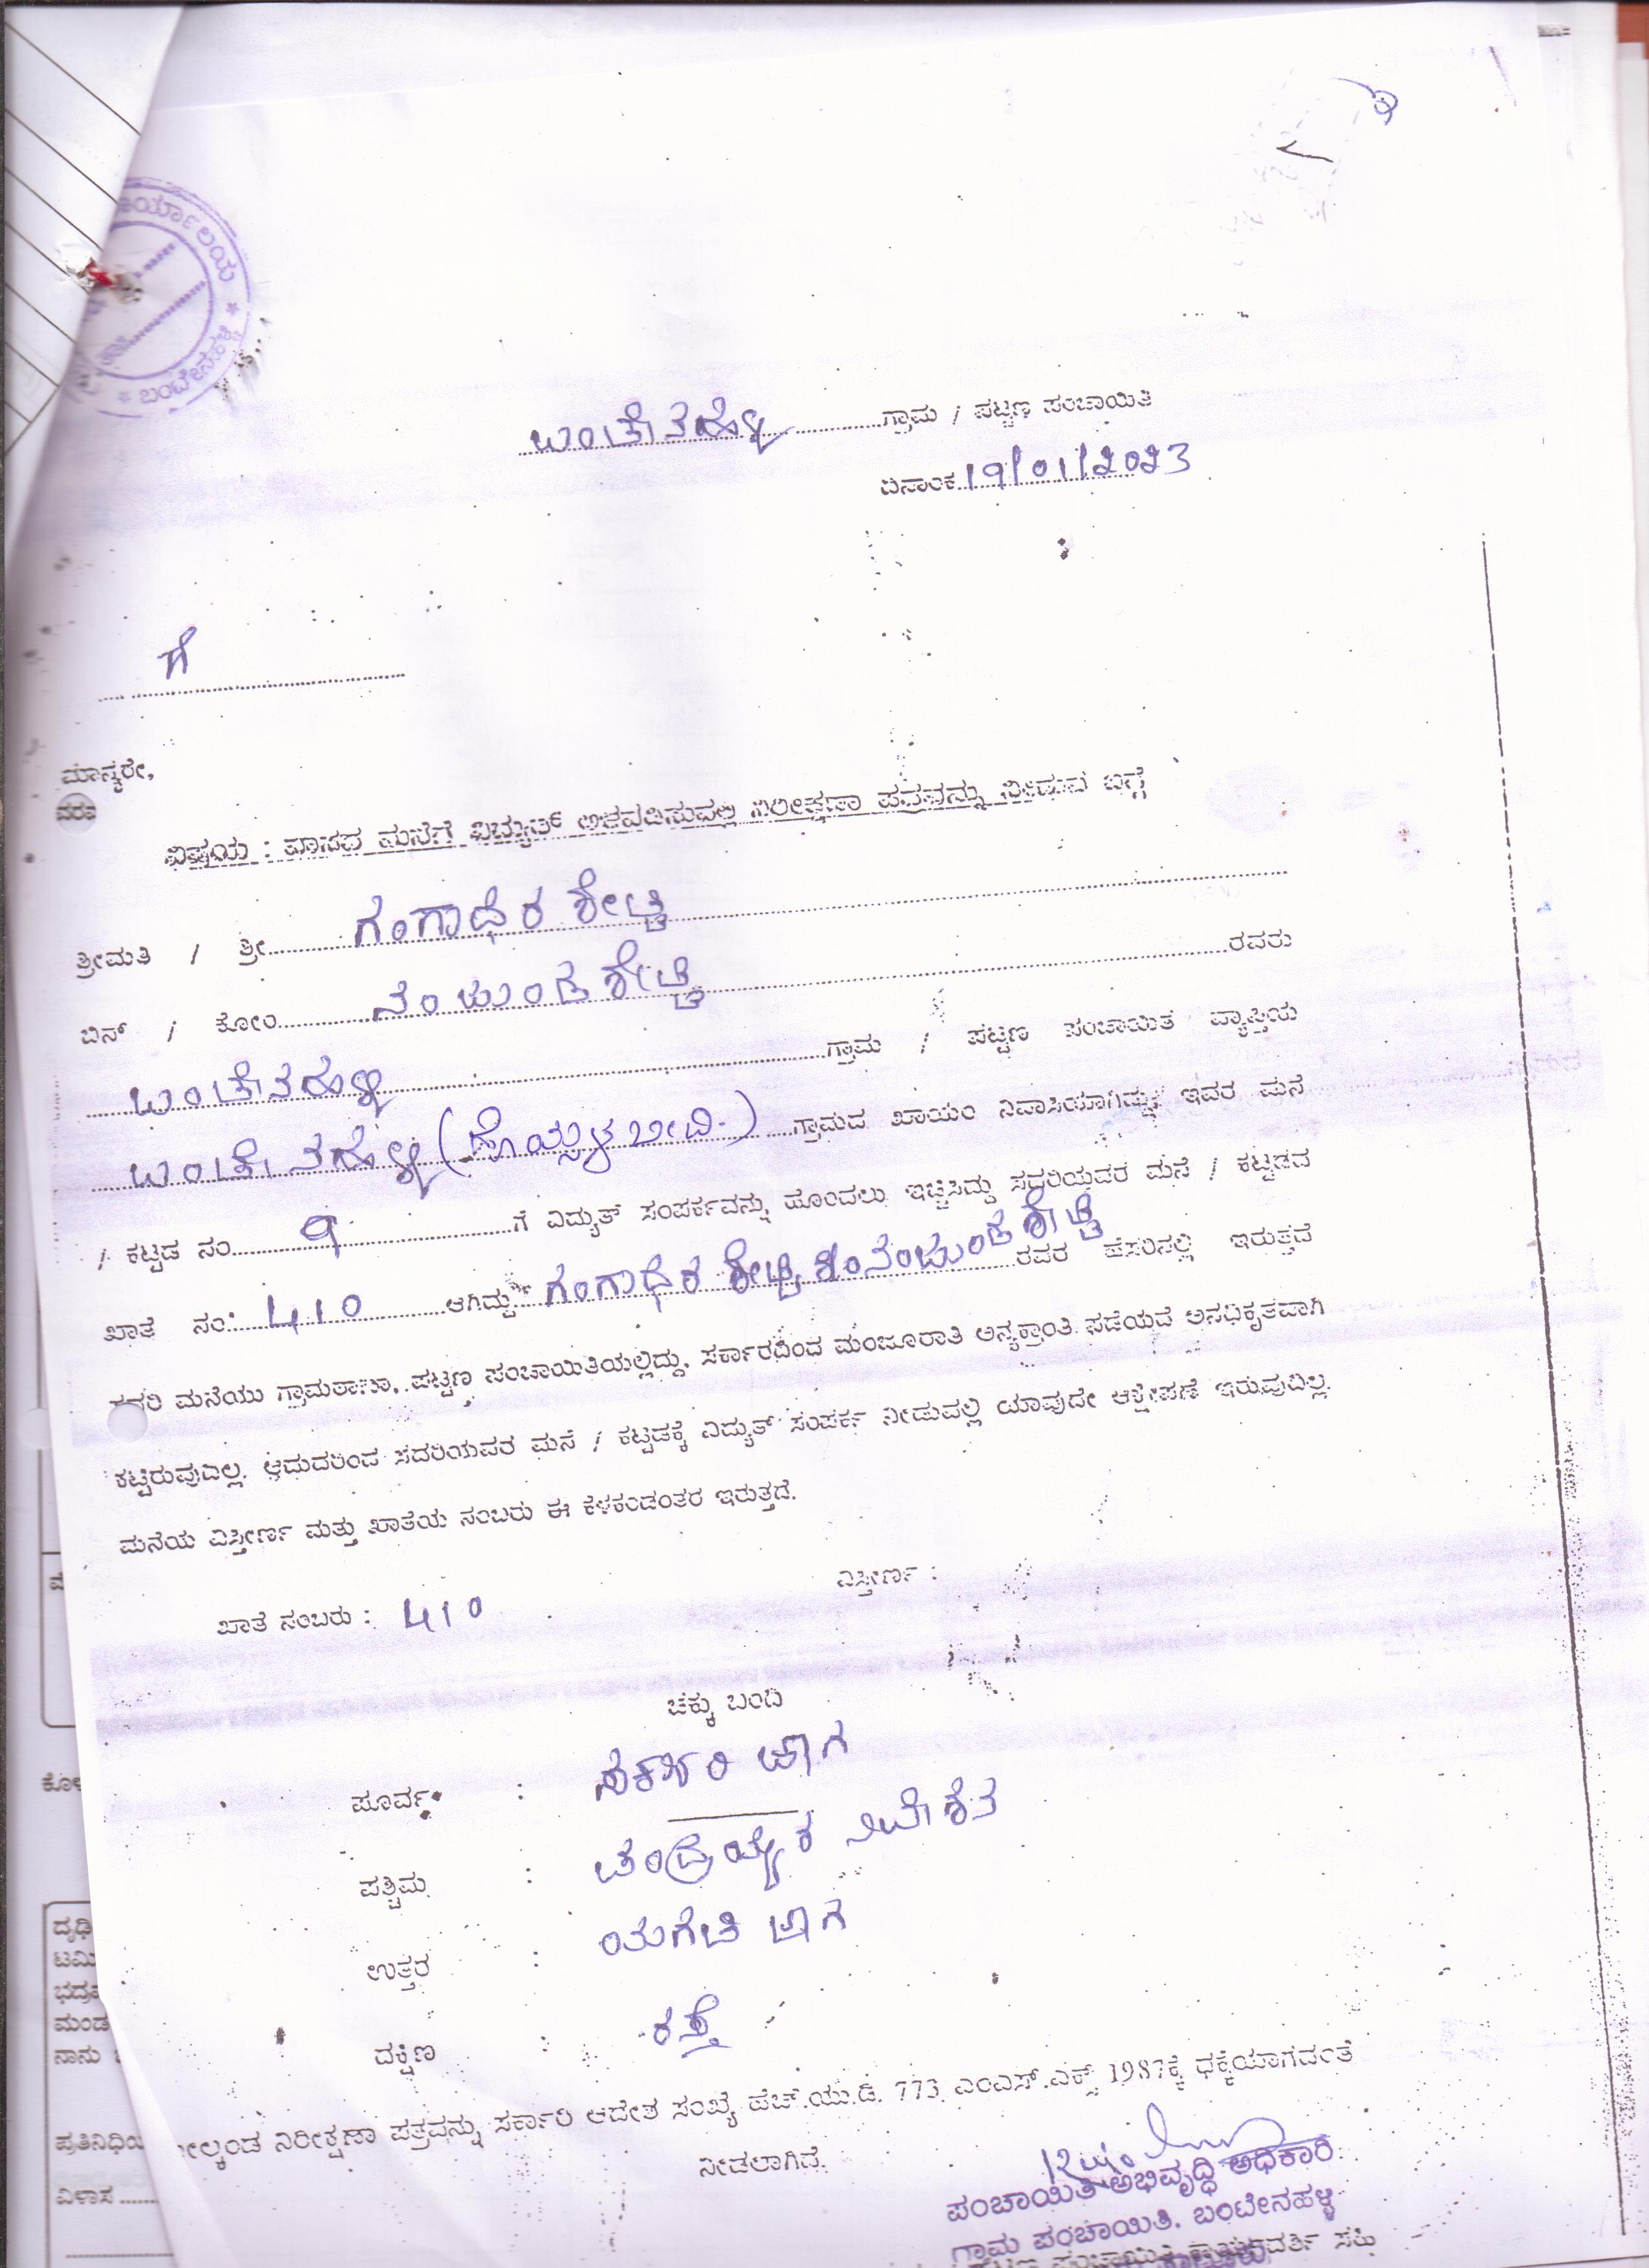 ಕಾರ್ಯಾಲಯ
* ಬಂಟೇನಹಳ್ಳಿ *
ಬಂಟೇನಹಳ್ಳಿ ಗ್ರಾಮ / ಪಟ್ಟಣ ಪಂಚಾಯಿತಿ
ದಿನಾಂಕ 19/01/2023
ಗೆ
ಮಾನ್ಯರೇ,
ವಿಷಯ : ವಾಸದ ಮನೆಗೆ ವಿದ್ಯುತ್ ಅಳವಡಿಸುವಲ್ಲಿ ನಿರೀಕ್ಷಣಾ ಪತ್ರವನ್ನು ನೀಡುವ ಬಗ್ಗೆ
ಶ್ರೀಮತಿ / ಶ್ರೀ ಗಂಗಾಧರ ಶೇಟ್ಟಿ
ಬಿನ್ / ಕೋಂ ನಂಜುಂಡ ಶೇಟ್ಟಿ ರವರು
ಬಂಟೇನಹಳ್ಳಿ ಗ್ರಾಮ / ಪಟ್ಟಣ ಪಂಚಾಯಿತ ವ್ಯಾಪ್ತಿಯ
ಬಂಟೇನಹಳ್ಳಿ (ಹೊಯ್ಸಳ ಬೀದಿ.) ಗ್ರಾಮದ ಖಾಯಂ ನಿವಾಸಿಯಾಗಿದ್ದು, ಇವರ ಮನೆ
/ ಕಟ್ಟಡ ನಂ. 9 ಗೆ ವಿದ್ಯುತ್ ಸಂಪರ್ಕವನ್ನು ಹೊಂದಲು ಇಚ್ಛಿಸಿದ್ದು ಸದರಿಯವರ ಮನೆ / ಕಟ್ಟಡದ
ಖಾತೆ ನಂ. 410 ಆಗಿದ್ದು ಗಂಗಾಧರ ಶೇಟ್ಟಿ ನಂಜುಂಡ ಶೇಟ್ಟಿ ರವರ ಹೆಸರಿನಲ್ಲಿ ಇರುತ್ತದೆ
ಸದರಿ ಮನೆಯು ಗ್ರಾಮಠಾಣಾ, ಪಟ್ಟಣ ಪಂಚಾಯಿತಿಯಲ್ಲಿದ್ದು, ಸರ್ಕಾರದಿಂದ ಮಂಜೂರಾತಿ ಅನ್ಯಕ್ರಾಂತಿ ಪಡೆಯದೆ ಅನಧಿಕೃತವಾಗಿ
ಕಟ್ಟಿರುವುದಿಲ್ಲ. ಆದುದರಿಂದ ಸದರಿಯವರ ಮನೆ / ಕಟ್ಟಡಕ್ಕೆ ವಿದ್ಯುತ್ ಸಂಪರ್ಕ ನೀಡುವಲ್ಲಿ ಯಾವುದೇ ಆಕ್ಷೇಪಣೆ ಇರುವುದಿಲ್ಲ.
ಮನೆಯ ವಿಸ್ತೀರ್ಣ ಮತ್ತು ಖಾತೆಯ ನಂಬರು ಈ ಕೆಳಕಂಡಂತರ ಇರುತ್ತದೆ.
ಖಾತೆ ನಂಬರು : 410 ವಿಸ್ತೀರ್ಣ :
ಚಕ್ಕು ಬಂದಿ
ಪೂರ್ವ : ಸರ್ಕಾರಿ ಜಾಗ
ಪಶ್ಚಿಮ : ಚಂದ್ರಯ್ಯರ ನಿವೇಶನ
ಉತ್ತರ : ಯಗಚಿ ಜಾಗ
ದಕ್ಷಿಣ : ರಸ್ತೆ
ಮೇಲ್ಕಂಡ ನಿರೀಕ್ಷಣಾ ಪತ್ರವನ್ನು ಸರ್ಕಾರಿ ಆದೇಶ ಸಂಖ್ಯೆ ಹೆಚ್.ಯು.ಡಿ. 773 ಎಂಎಸ್.ಎಕ್ಸ್ 1987ಕ್ಕೆ ಧಕ್ಕೆಯಾಗದಂತೆ
ನೀಡಲಾಗಿದೆ.
ಪಂಚಾಯಿತಿ ಅಭಿವೃದ್ಧಿ ಅಧಿಕಾರಿ
ಗ್ರಾಮ ಪಂಚಾಯಿತಿ. ಬಂಟೇನಹಳ್ಳಿ
ಪ್ರತಿನಿಧಿಯ
ವಿಳಾಸ